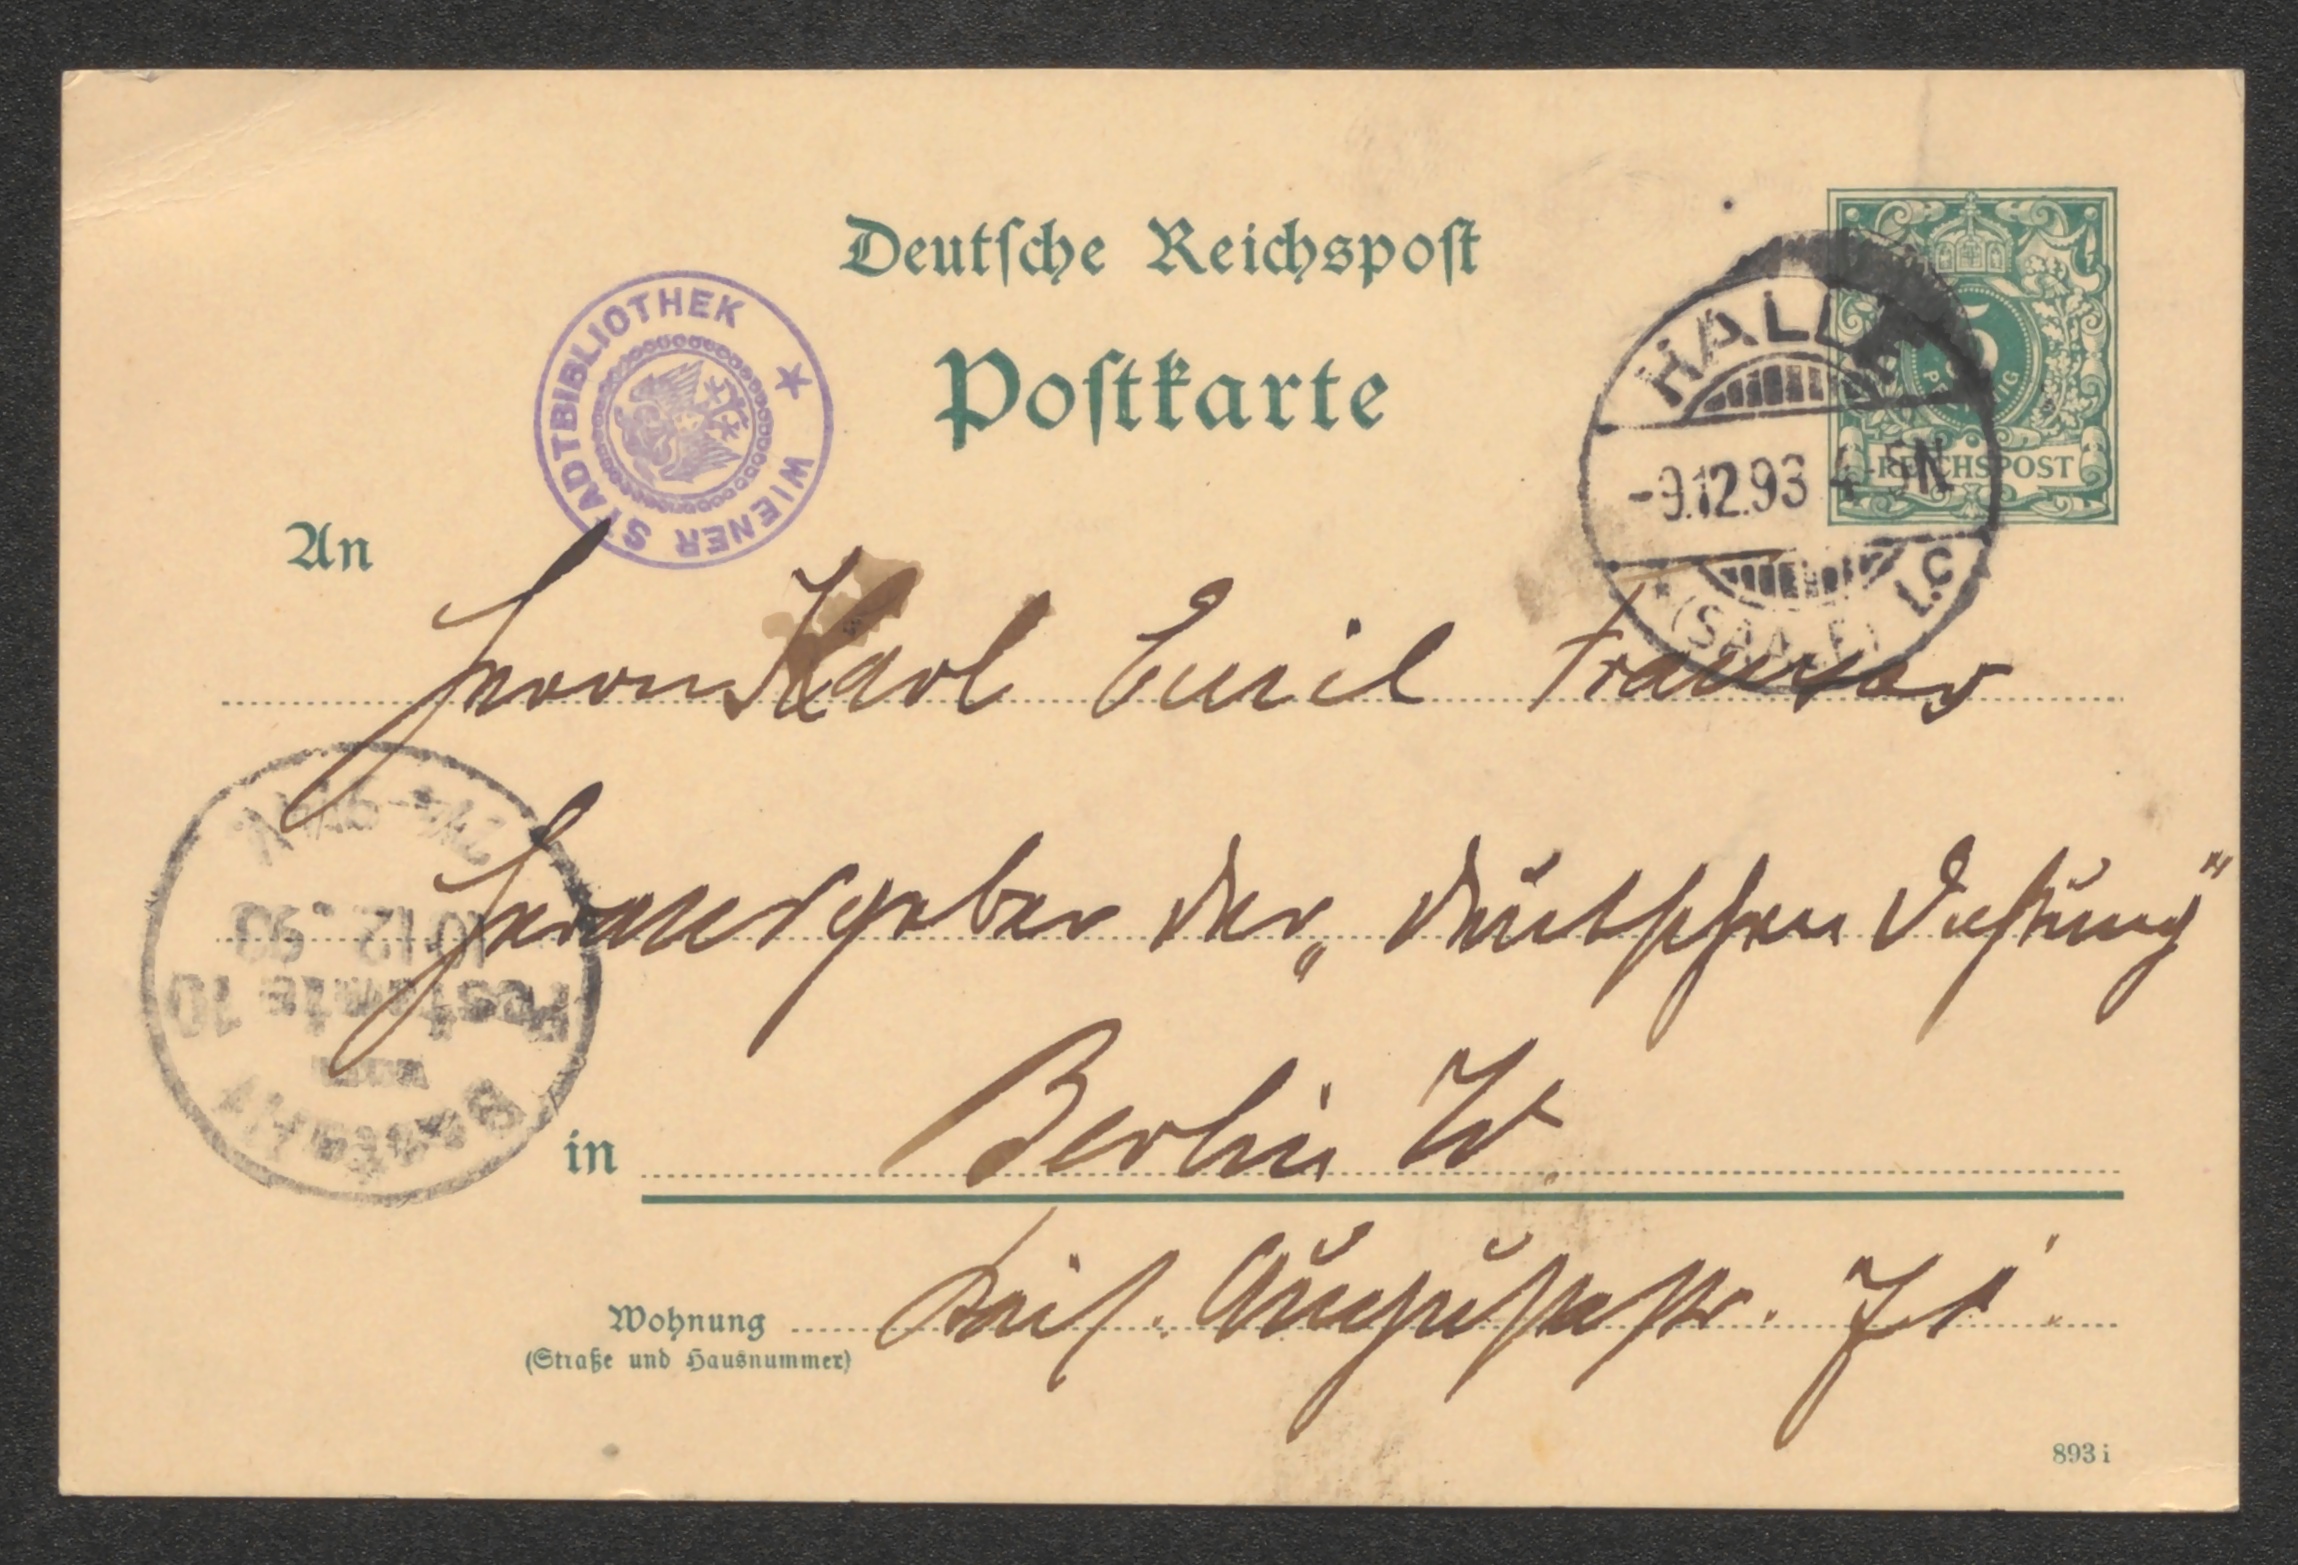 Deutsche Reichspost
Postkarte
WIENER STADTBIBLIOTHEK
5
PFENNIG
REICHSPOST
HALLE
-9.12.93 4-5N
(SAALE) 1.c
An
Herrn Karl Emil Franzos
Herausgeber der „deutschen Dichtung"
in Berlin W.
Wohnung Kais. Augustastr. 71.
(Straße und Hausnummer)
Bestellt
vom
Postamte 10
10 12. 93
893 i